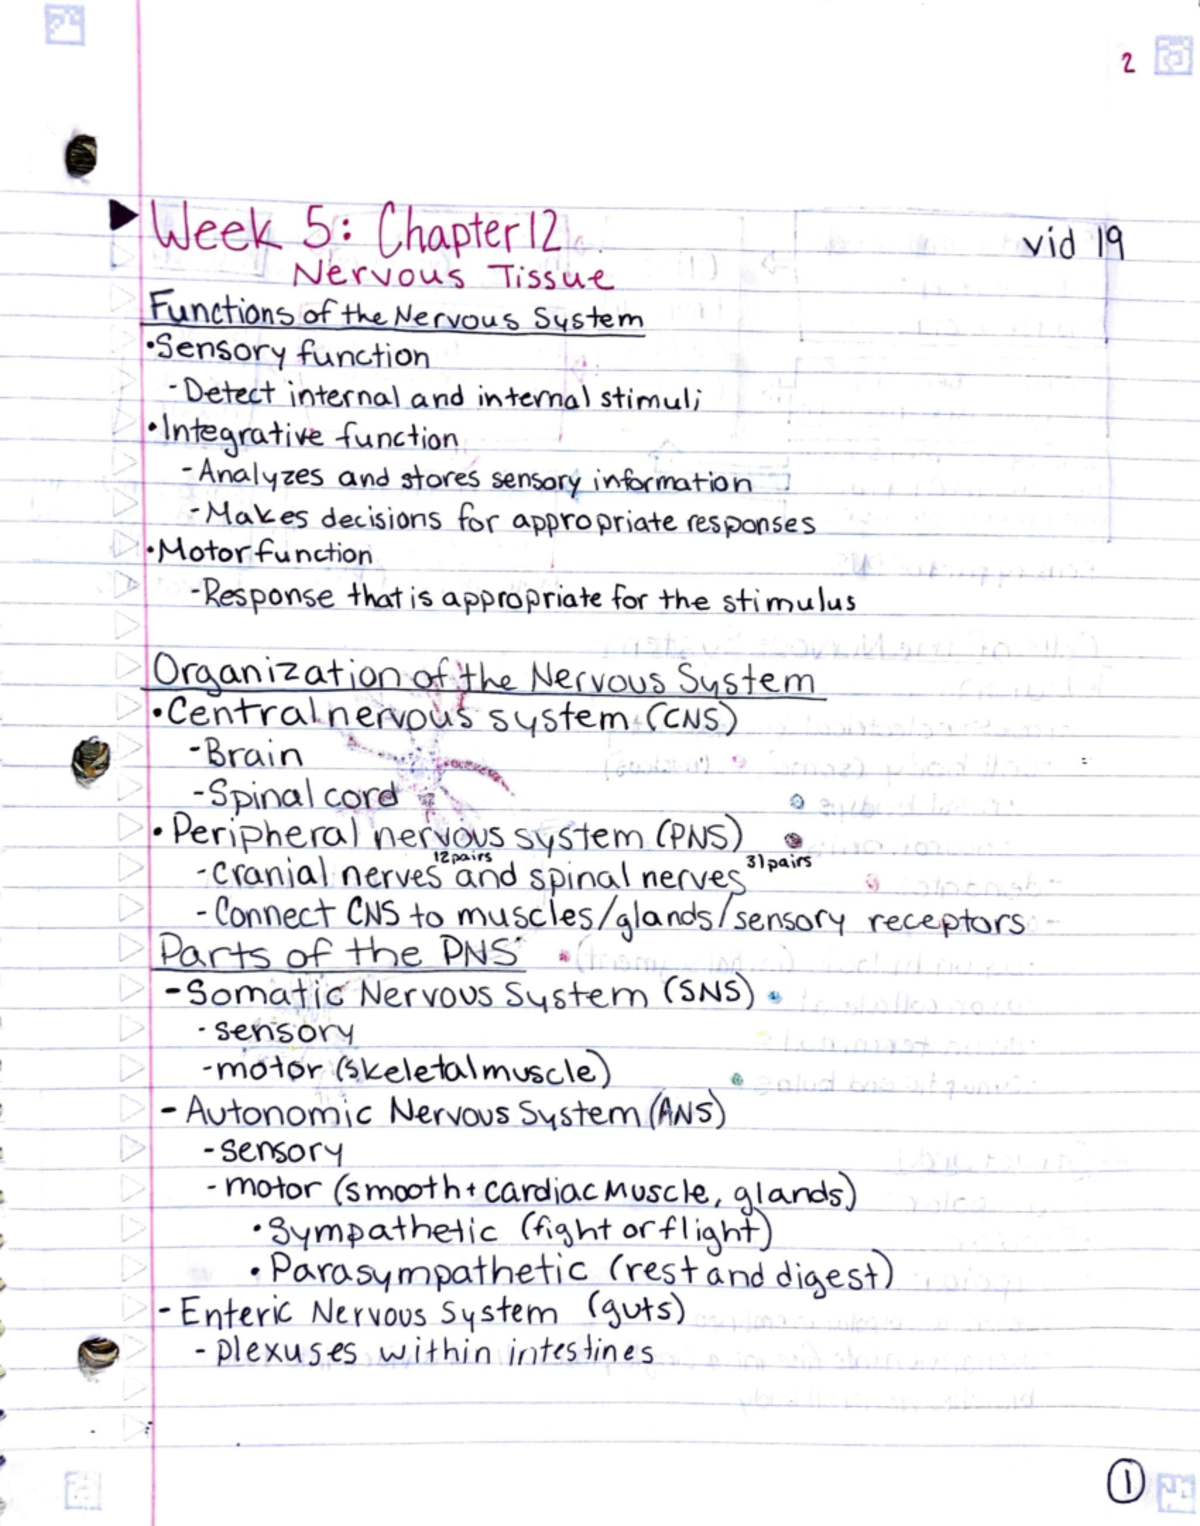 2
Week 5: Chapter 12
vid 19
Nervous Tissue
Functions of the Nervous System
•Sensory function
-Detect internal and internal stimuli
•Integrative function
-Analyzes and stores sensory information
-Makes decisions for appropriate responses
•Motor function
-Response that is appropriate for the stimulus
Organization of the Nervous System
•Central nervous system (CNS)
-Brain
-Spinal cord
•Peripheral nervous system (PNS)
12 pairs 31 pairs
-Cranial nerves and spinal nerves
-Connect CNS to muscles/glands/sensory receptors
Parts of the PNS
-Somatic Nervous System (SNS)
·sensory
-motor (skeletal muscle)
-Autonomic Nervous System (ANS)
-sensory
-motor (smooth + cardiac muscle, glands)
•Sympathetic (fight or flight)
•Parasympathetic (rest and digest)
-Enteric Nervous System (guts)
-plexuses within intestines
1